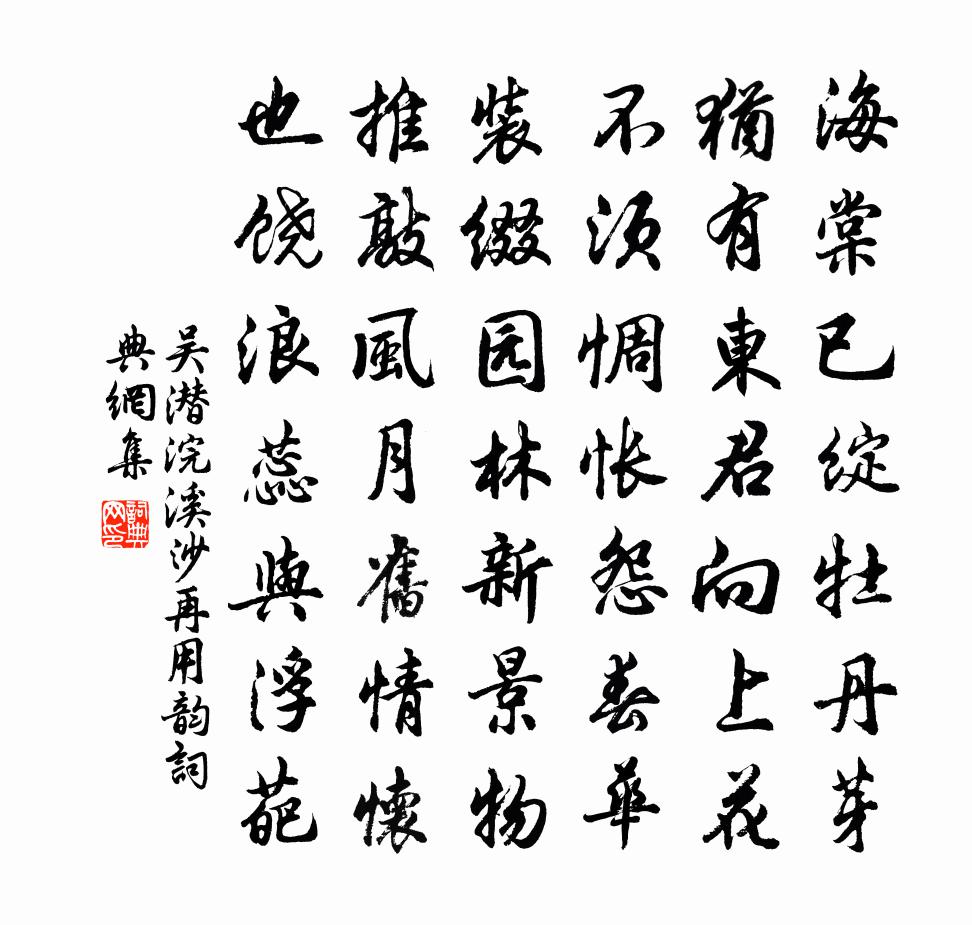 海棠已綻牡丹芽
猶有東君向上花
不須惆怅怨春華
裝缀园林新景物
推敲風月舊情懷
也饶浪蕊與浮葩
吴潜浣溪沙再用韵詞
典網集
詞典网印